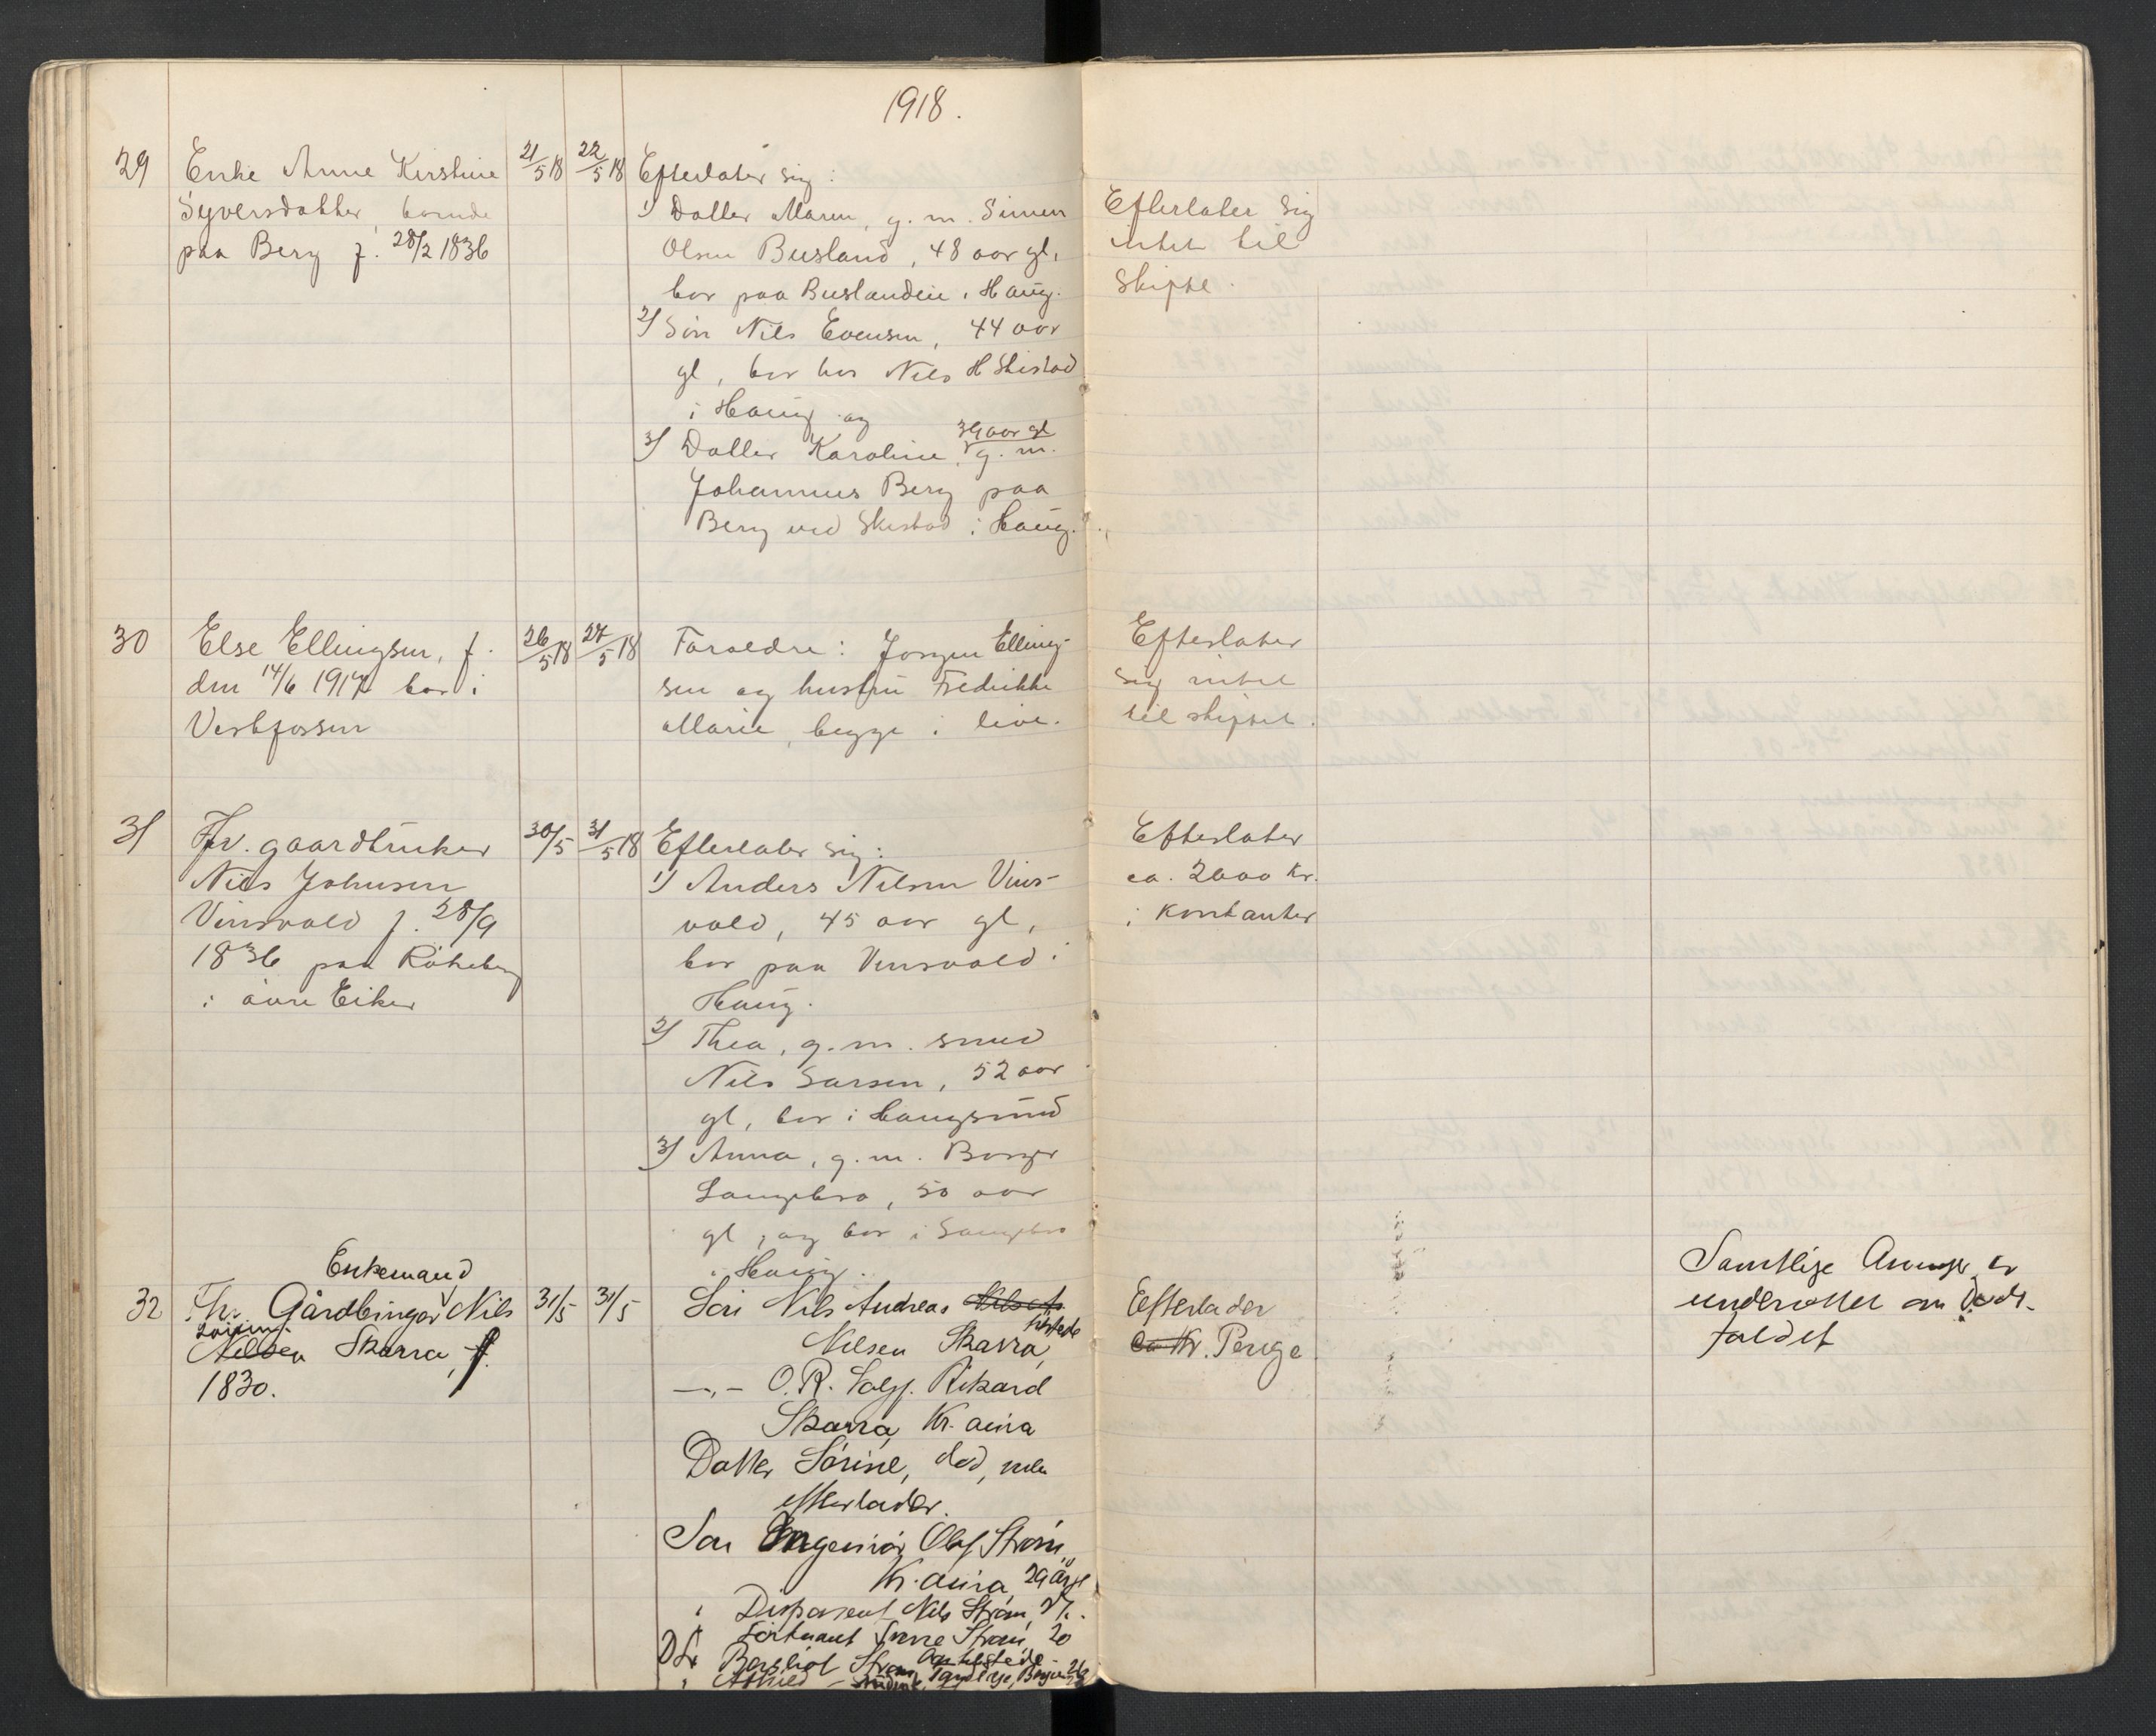 1918.
29
Enke Anne Kirstine
Syversdatter, boende
paa Berg f. 28/2 1836
21/5 18
22/5 18
Efterlater sig:
1) Datter Maren, g. m. Simen
Olsen Busland, 48 aar gl,
bor paa Buslandeie i Haug.
2) Søn Nils Evensen, 44 aar
gl, bor hos Nils H Skistad
i Haug og
3) Datter Karoline, 39 aar gl g. m.
Johannes Berg paa
Berg ved Skistad i Haug.
Efterlater sig
intet til
skifte.
30
Else Ellingsen, f.
den 14/6 1917 bor i
Vestfossen
26/5 18
27/5 18
Foreldre: Jørgen Elling-
sen og hustru Fredrikke
Marie, begge i live.
Efterlater
sig intet
til skifte.
31
Fhv. gaardbruker
Nils Johnsen
Vinsvold f. 28/9
1836 paa Røkeberg
i øvre Eiker
30/5
31/5 18
Efterlater sig:
1) Anders Nilsen Vins-
vold, 45 aar gl,
bor paa Vinsvold i
Haug.
2) Thea, g. m. smed
Nils Larsen, 52 aar
gl, bor i Haugsund
3) Anna, g. m. Borger
Langebro, 50 aar
gl, og bor i Langebro
i Haug.
Efterlater
ca. 2000 kr.
i kontanter
32
Enkemand
Fh. Gårdbruger Nils
Nilsen Skarra, f.
1830.
31/5
31/5
Søn Nils Andreas
Nilsen Skarra, hstede
—„— O.R. Sagf. Rikard
Skarra, Kr.ania
Datter Sørine, død, men
efterlader.
Søn Ingeniør Olaf Strøm,
Kr.ania, 29 år gl
" Disponent Nils Strøm, 27.
" Løitnant Sverre Strøm, 20
Dtr Bergliot Strøm
Efterlader
ca Kr. Penge
Samtlige Arvinger er
underrettet om Døds-
faldet